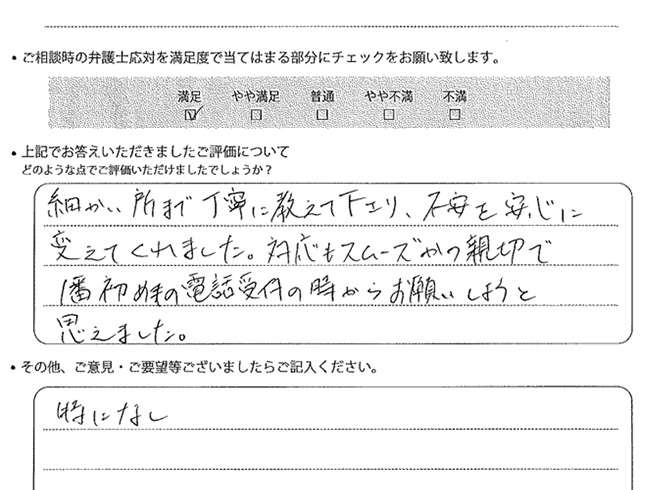 ・ご相談時の弁護士応対を満足度で当てはまる部分にチェックをお願い致します。
満足 やや満足 普通 やや不満 不満
☑ ☐ ☐ ☐ ☐
・上記でお答えいただきましたご評価について
どのような点でご評価いただけましたでしょうか？
細かい所まで丁寧に教えて下さり、不安を安心に
変えてくれました。対応もスムーズかつ親切で
1番初めの電話受付の時からお願いしようと
思えました。
・その他、ご意見・ご要望等ございましたらご記入ください。
特になし